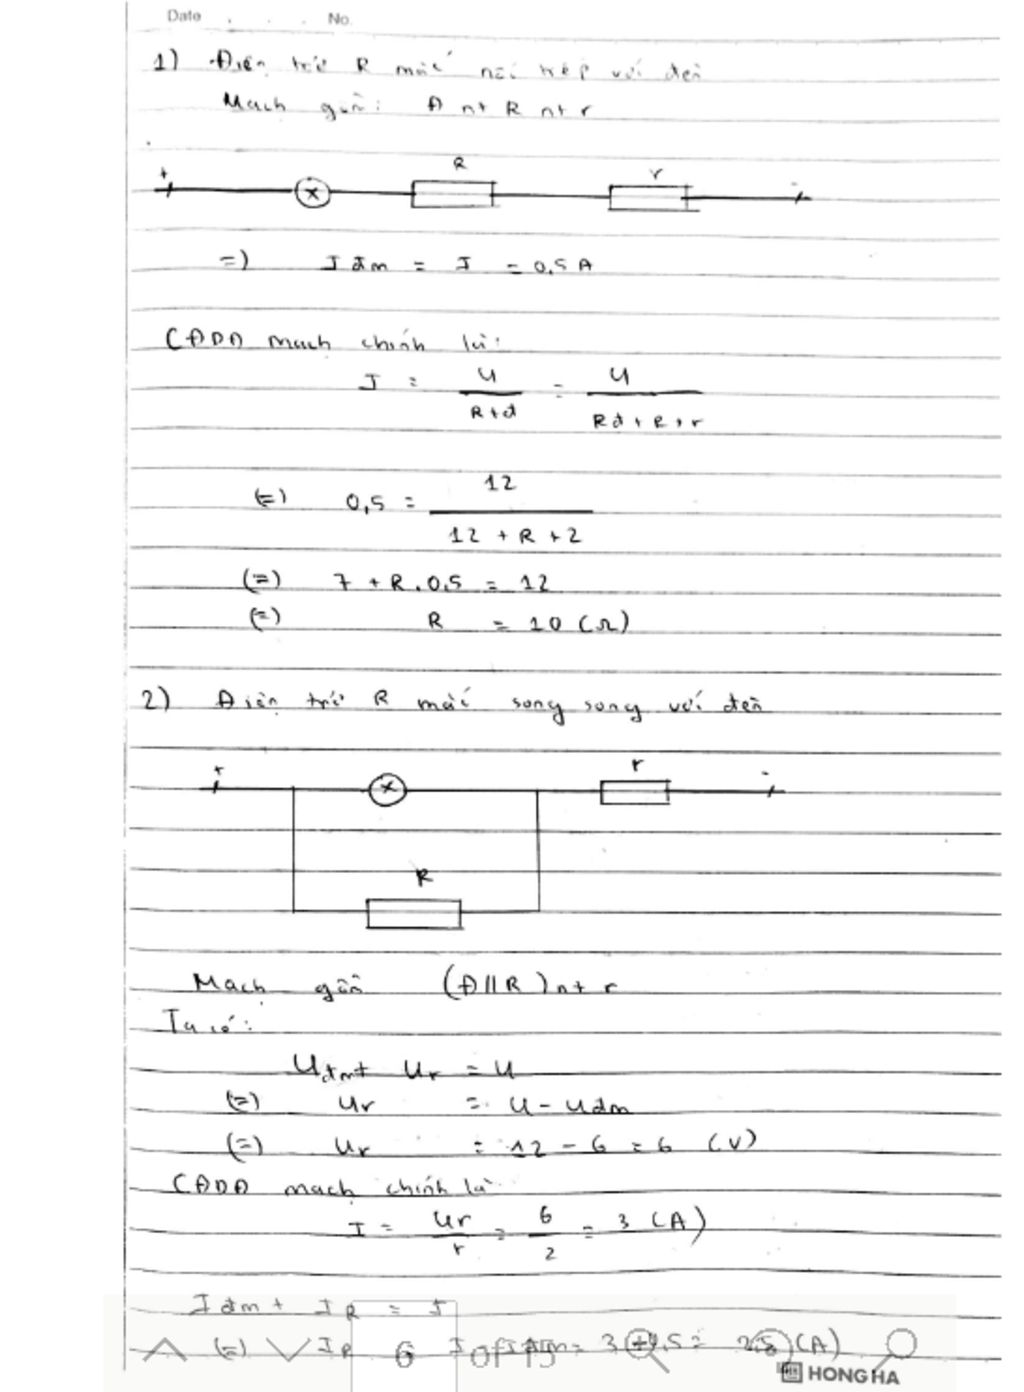 Date . . . No.
1) Điện trở R mắc nối tiếp với đèn
Mạch gồm: Đ nt R nt r
+ R r -
=) I đm = I = 0,5 A
CĐDĐ mạch chính là:
I = U / R tđ = U / Rđ + R + r
(=) 0,5 = 12 / 12 + R + 2
(=) 7 + R . 0,5 = 12
(=) R = 10 (Ω)
2) Điện trở R mắc song song với đèn
+ r -
R
Mạch gồm (Đ // R) nt r
Ta có:
Uđm + Ur = U
(=) Ur = U - Uđm
(=) Ur = 12 - 6 = 6 (V)
CĐDĐ mạch chính là
I = Ur / r = 6 / 2 = 3 (A)
I đm + I R = I
(=) IR = 3 0,5 = (A)
6 of 15
HONG HA